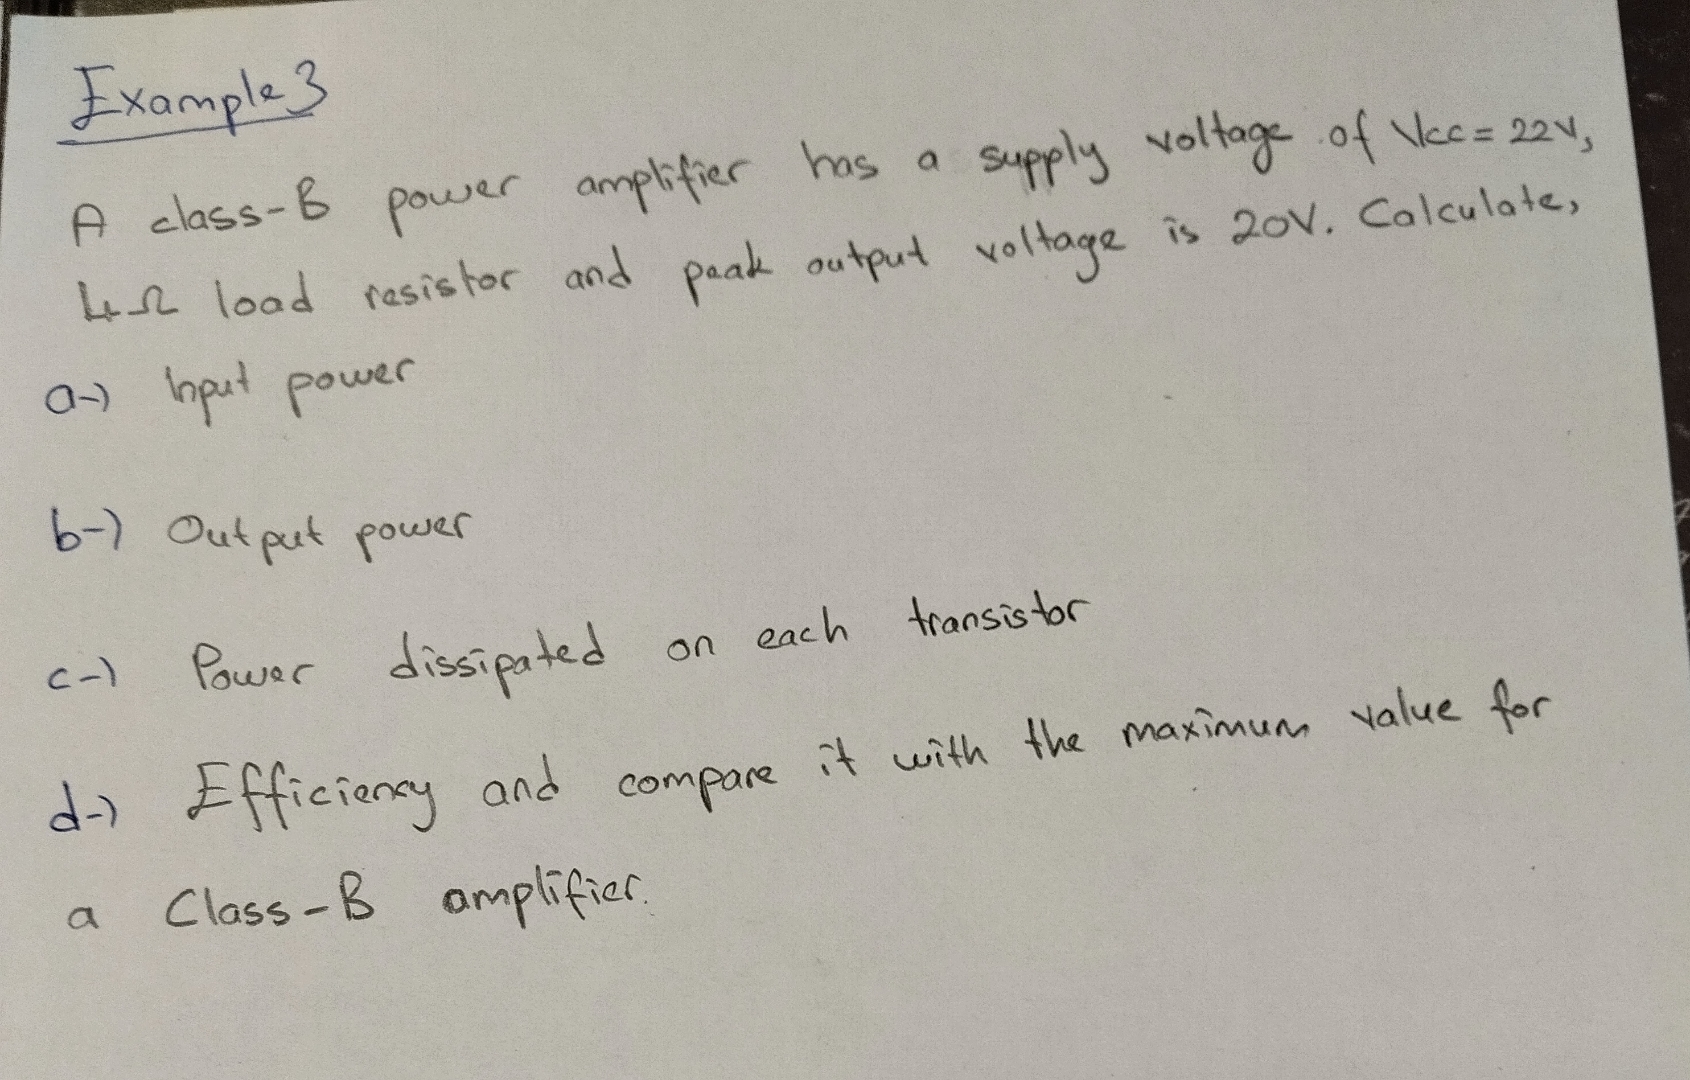 Example 3
A class-B power amplifier has a supply voltage of Vcc = 22V,
4Ω load resistor and peak output voltage is 20V. Calculate,
a-) Input power
b-) Output power
c-) Power dissipated on each transistor
d-) Efficiency and compare it with the maximum value for
a Class-B amplifier.